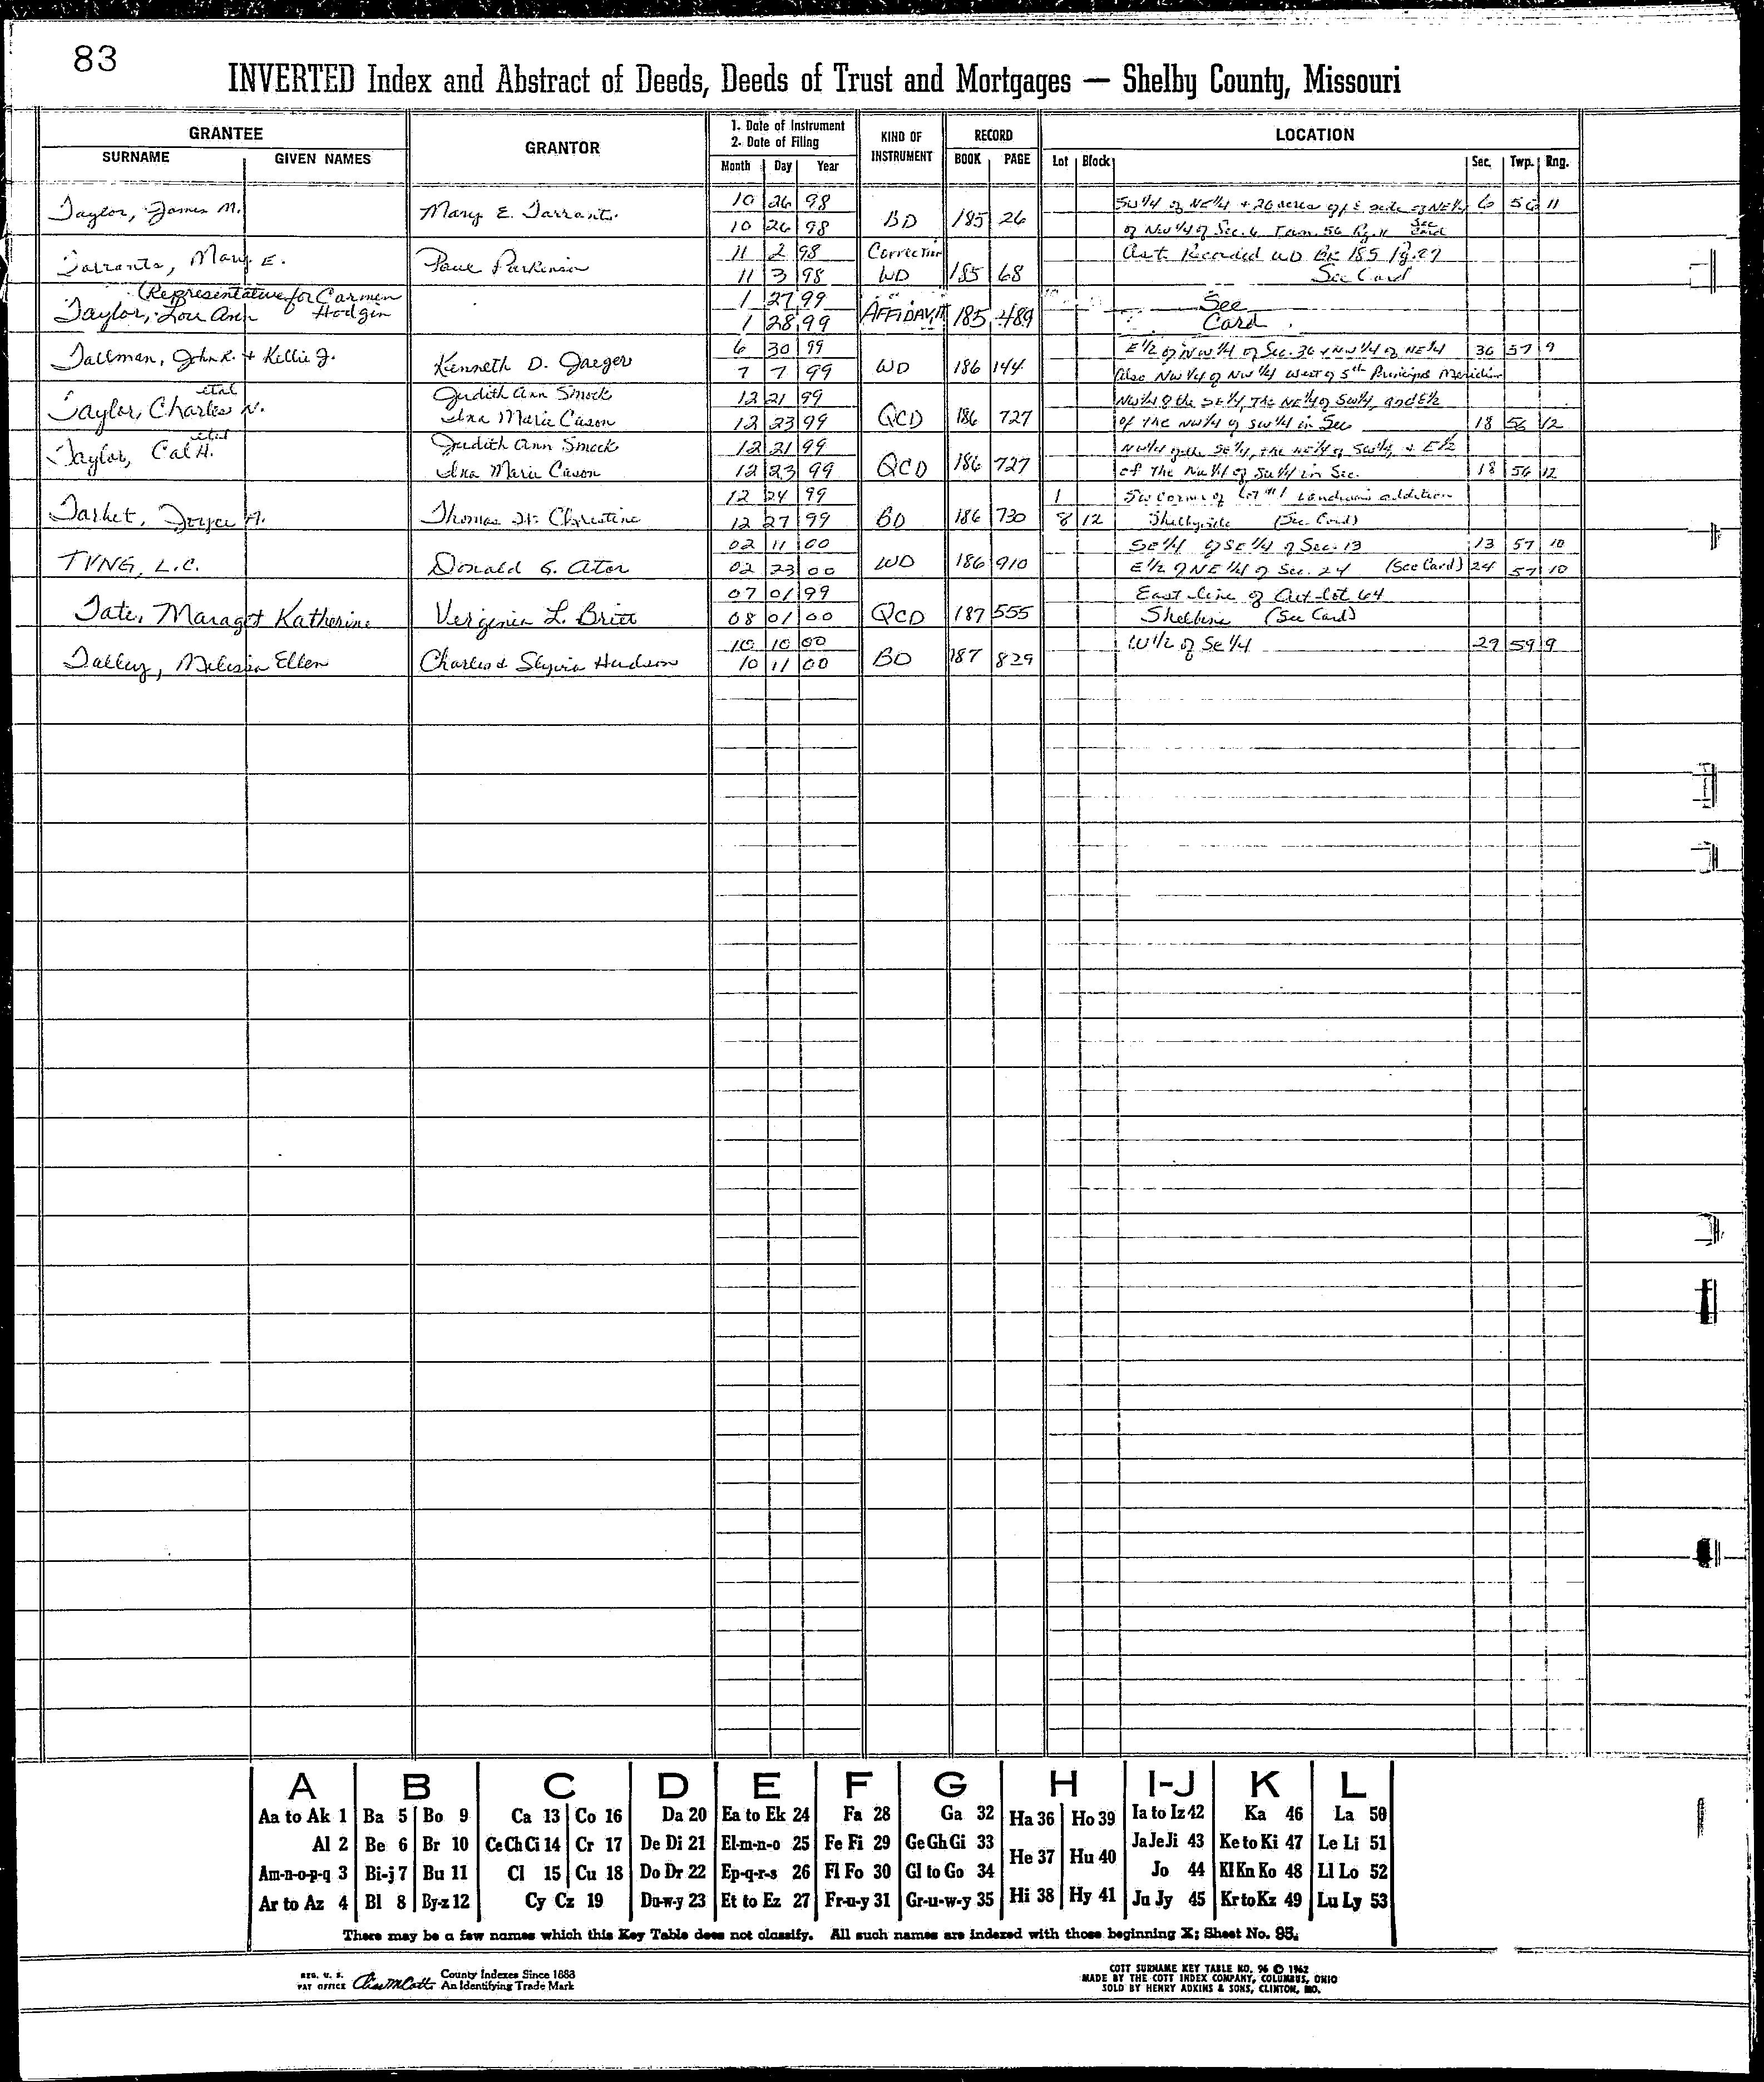 83
INVERTED Index and Abstract of Deeds, Deeds of Trust and Mortgages — Shelby County, Missouri
GRANTEE
SURNAME GIVEN NAMES
GRANTOR
1. Date of Instrument
2. Date of Filing
Month Day Year
KIND OF
INSTRUMENT
RECORD
BOOK PAGE
LOCATION
Lot Block Sec. Twp. Rng.
Taylor, James M. Mary E. Tarrants. 10 26 98 BD 185 26 SW 1/4 of NE 1/4 + 26 acres off E side of NE 1/4 6 56 11
10 26 98 of NW 1/4 of Sec. 6 Twn. 56 Rg. 11 See Card
Tarrants, Mary E. Paul Parkinson 11 2 98 Correction
11 3 98 WD 185 68 Recorded WD BK 185 Pg. 27
See Card
(Representative for Carmen
Taylor, Lou Ann Hodgin 1 27 99 AFFIDAVIT 185 489 See
1 28 99 Card
Tallman, John R. + Kellie J. Kenneth D. Jaeger 6 30 99 WD 186 144 E 1/2 of NW 1/4 of Sec. 36 + NW 1/4 of NE 1/4 36 57 9
7 7 99 Also NW 1/4 of NW 1/4 West of 5th Principal Meridian
etal
Taylor, Charles N. Judith Ann Smock 12 21 99 QCD 186 727 NW 1/4 of the SE 1/4, The NE 1/4 of SW 1/4, and E 1/2
Ina Marie Cason 12 23 99 of the NW 1/4 of SW 1/4 in Sec 18 56 12
etal
Taylor, Cal H. Judith Ann Smock 12 21 99 QCD 186 727 NW 1/4 of the SE 1/4, the NE 1/4 of SW 1/4, & E 1/2
Ina Marie Cason 12 23 99 of the NW 1/4 of SW 1/4 in Sec. 18 56 12
Tarket, Joyce A. Thomas H. Christine 12 24 99 BD 186 730 1 SW Corner of Lot #1 Landrums addition
12 27 99 8 12 Shelbyville (See Card)
TVNG, L.C. Donald G. Ator 02 11 00 WD 186 910 SE 1/4 of SE 1/4 of Sec. 13 13 57 10
02 23 00 E 1/2 of NE 1/4 of Sec. 24 (See Card) 24 57 10
Tate, Maragot Katherine Verginia L. Britt 07 01 99 QCD 187 555 East line of Out-lot 64
08 01 00 Shelbina (See Card)
Talley, Melissa Ellen Charles & Slyvia Hudson 10 10 00 BD 187 829 W 1/2 of SE 1/4 29 59 9
10 11 00
A B C D E F G H I-J K L
Aa to Ak 1 Ba 5 Bo 9 Ca 13 Co 16 Da 20 Ea to Ek 24 Fa 28 Ga 32 Ha 36 Ho 39 Ia to Iz 42 Ka 46 La 50
Al 2 Be 6 Br 10 Ce Ch Ci 14 Cr 17 De Di 21 El-m-n-o 25 Fe Fi 29 Ge Gh Gi 33 He 37 Hu 40 Ja Je Ji 43 Ke to Ki 47 Le Li 51
Am-n-o-p-q 3 Bi-j 7 Bu 11 Cl 15 Cu 18 Do Dr 22 Ep-q-r-s 26 Fl Fo 30 Gl to Go 34 Jo 44 Kl Kn Ko 48 Ll Lo 52
Ar to Az 4 Bl 8 By-z 12 Cy Cz 19 Du-w-y 23 Et to Ez 27 Fr-u-y 31 Gr-u-w-y 35 Hi 38 Hy 41 Ju Jy 45 Kr to Kz 49 Lu Ly 53
There may be a few names which this Key Table does not classify. All such names are indexed with those beginning X; Sheet No. 95.
REG. U. S. PAT OFFICE County Indexes Since 1888
An Identifying Trade Mark
COTT SURNAME KEY TABLE NO. 96 © 1962
MADE BY THE COTT INDEX COMPANY, COLUMBUS, OHIO
SOLD BY HENRY ADKINS & SONS, CLINTON, MO.